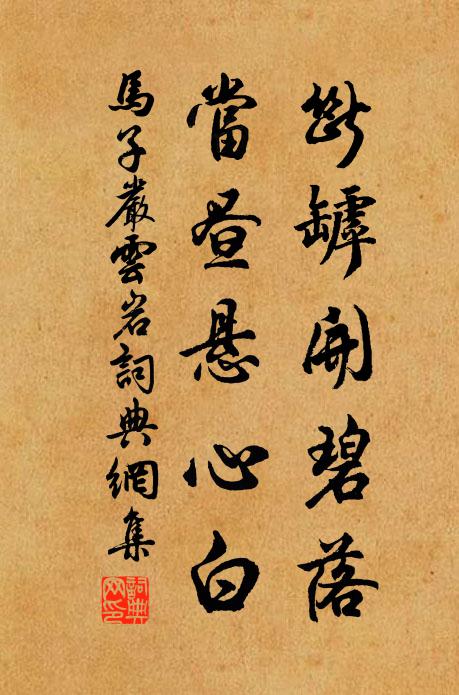 斷罅開碧落
當晝悬心白
馬子嚴雲岩詞典網集
詞典网印